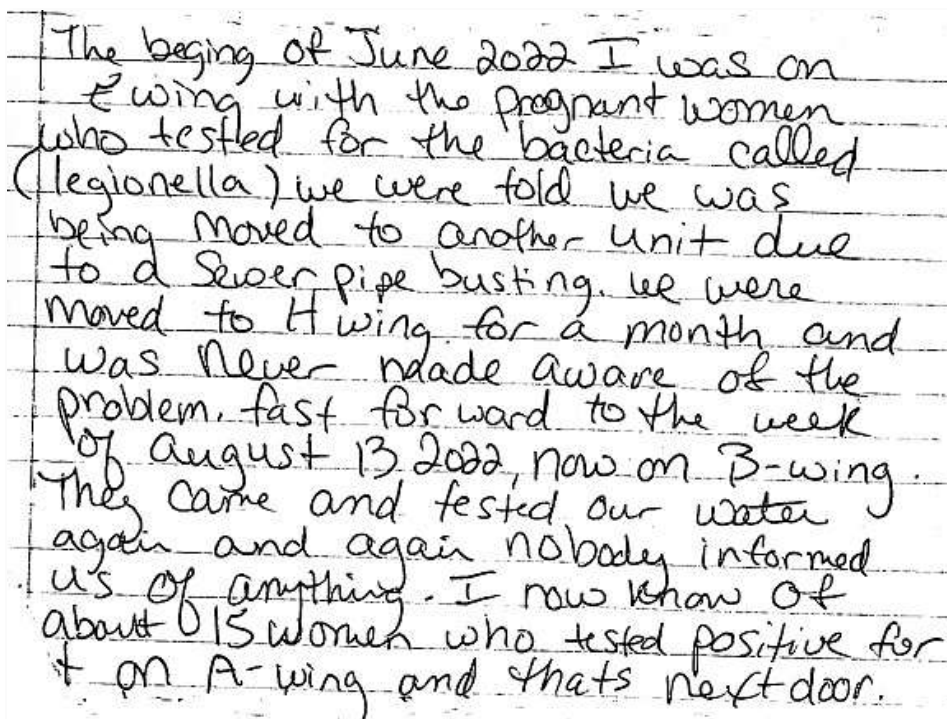 The beging of June 2022 I was on
E wing with the pregnant women
who tested for the bacteria called
(legionella) we were told we was
being moved to another unit due
to a Sewer pipe busting. we were
moved to H wing for a month and
was never made aware of the
problem. fast forward to the week
of august 13 2022, now on B-wing.
They came and tested our water
again and again nobody informed
us of anything. I now know of
about 15 women who tested positive for
t on A-wing and thats next door.